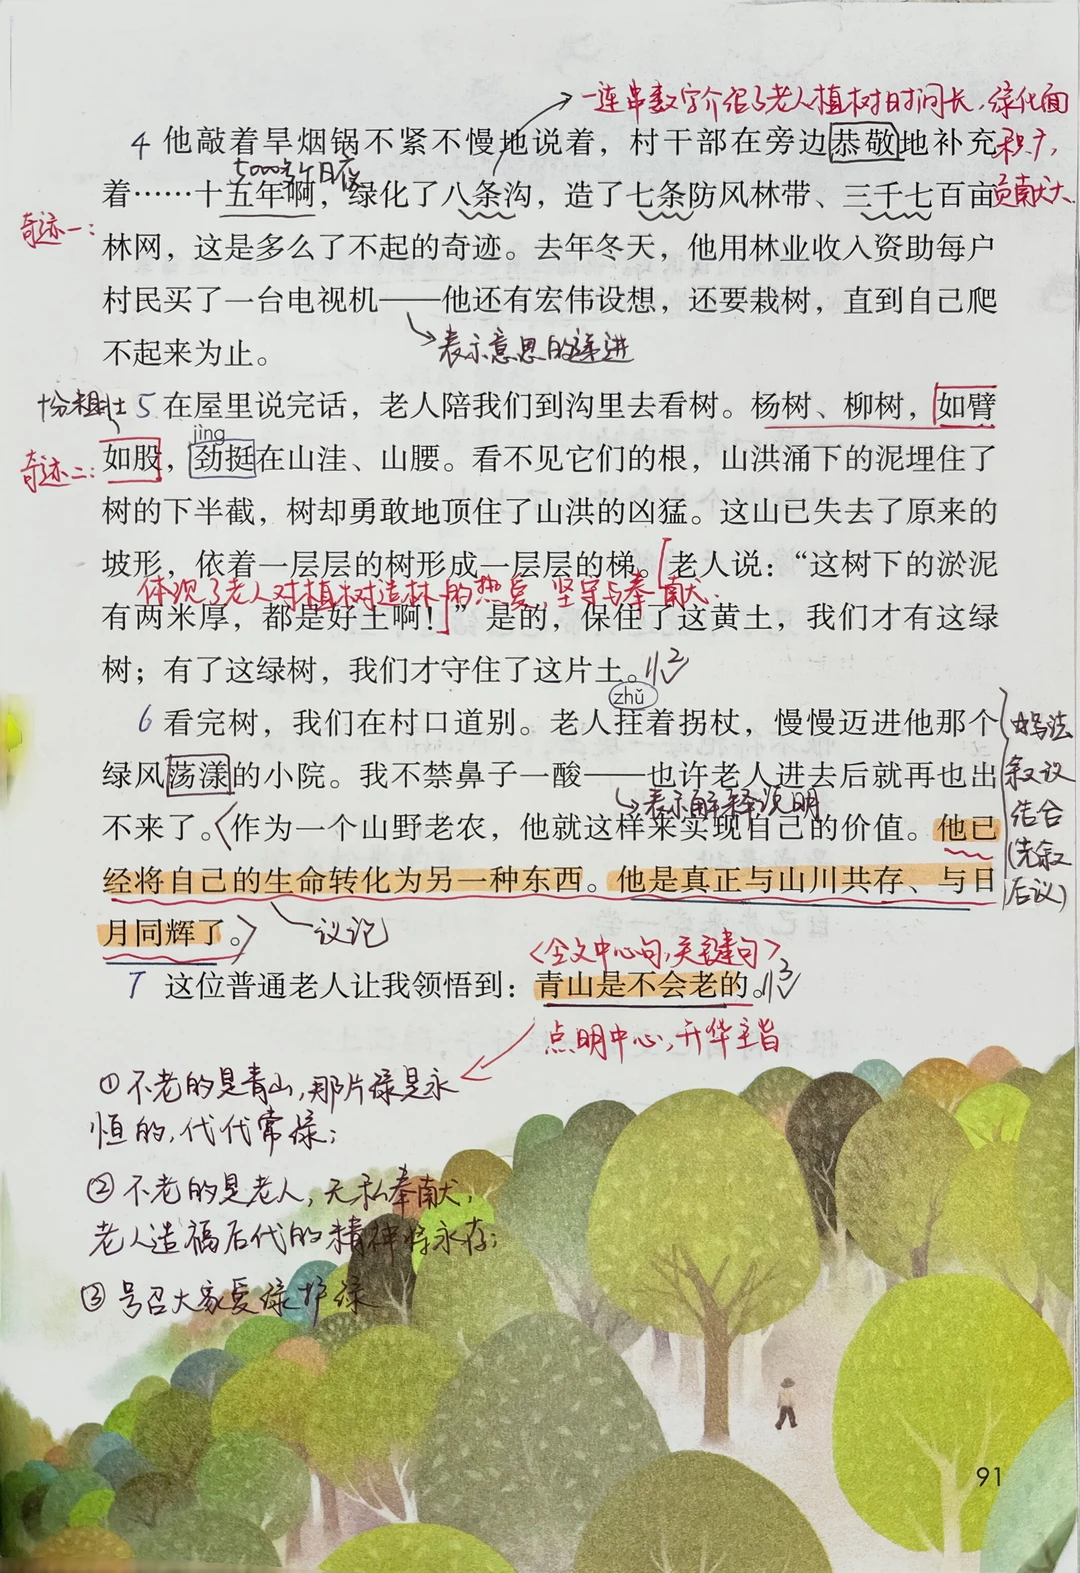 一连串数字介绍了老人植树时间长,绿化面
积广,
贡献大.
4 他敲着旱烟锅不紧不慢地说着，村干部在旁边恭敬地补充
5000多个日夜
着……十五年啊，绿化了八条沟，造了七条防风林带、三千七百亩
奇迹一:
林网，这是多么了不起的奇迹。去年冬天，他用林业收入资助每户
村民买了一台电视机——他还有宏伟设想，还要栽树，直到自己爬
表示意思的递进
不起来为止。
十分粗壮
5 在屋里说完话，老人陪我们到沟里去看树。杨树、柳树，如臂
jìng
奇迹二:
如股，劲挺在山洼、山腰。看不见它们的根，山洪涌下的泥埋住了
树的下半截，树却勇敢地顶住了山洪的凶猛。这山已失去了原来的
坡形，依着一层层的树形成一层层的梯。老人说：“这树下的淤泥
体现了老人对植树造林的热爱,坚守与奉献.
有两米厚，都是好土啊！”是的，保住了这黄土，我们才有这绿
树；有了这绿树，我们才守住了这片土。2
zhǔ
6 看完树，我们在村口道别。老人拄着拐杖，慢慢迈进他那个
绿风荡漾的小院。我不禁鼻子一酸——也许老人进去后就再也出
表示解释说明
不来了。〈作为一个山野老农，他就这样来实现自己的价值。他已
经将自己的生命转化为另一种东西。他是真正与山川共存、与日
月同辉了。〉
议论
写法
叙议
结合
(先叙
后议)
〈全文中心句,关键句〉
7 这位普通老人让我领悟到：青山是不会老的。3
点明中心,升华主旨
①不老的是青山,那片绿是永
恒的,代代常绿;
②不老的是老人,无私奉献,
老人造福后代的精神将永存;
③号召大家爱绿护绿
91